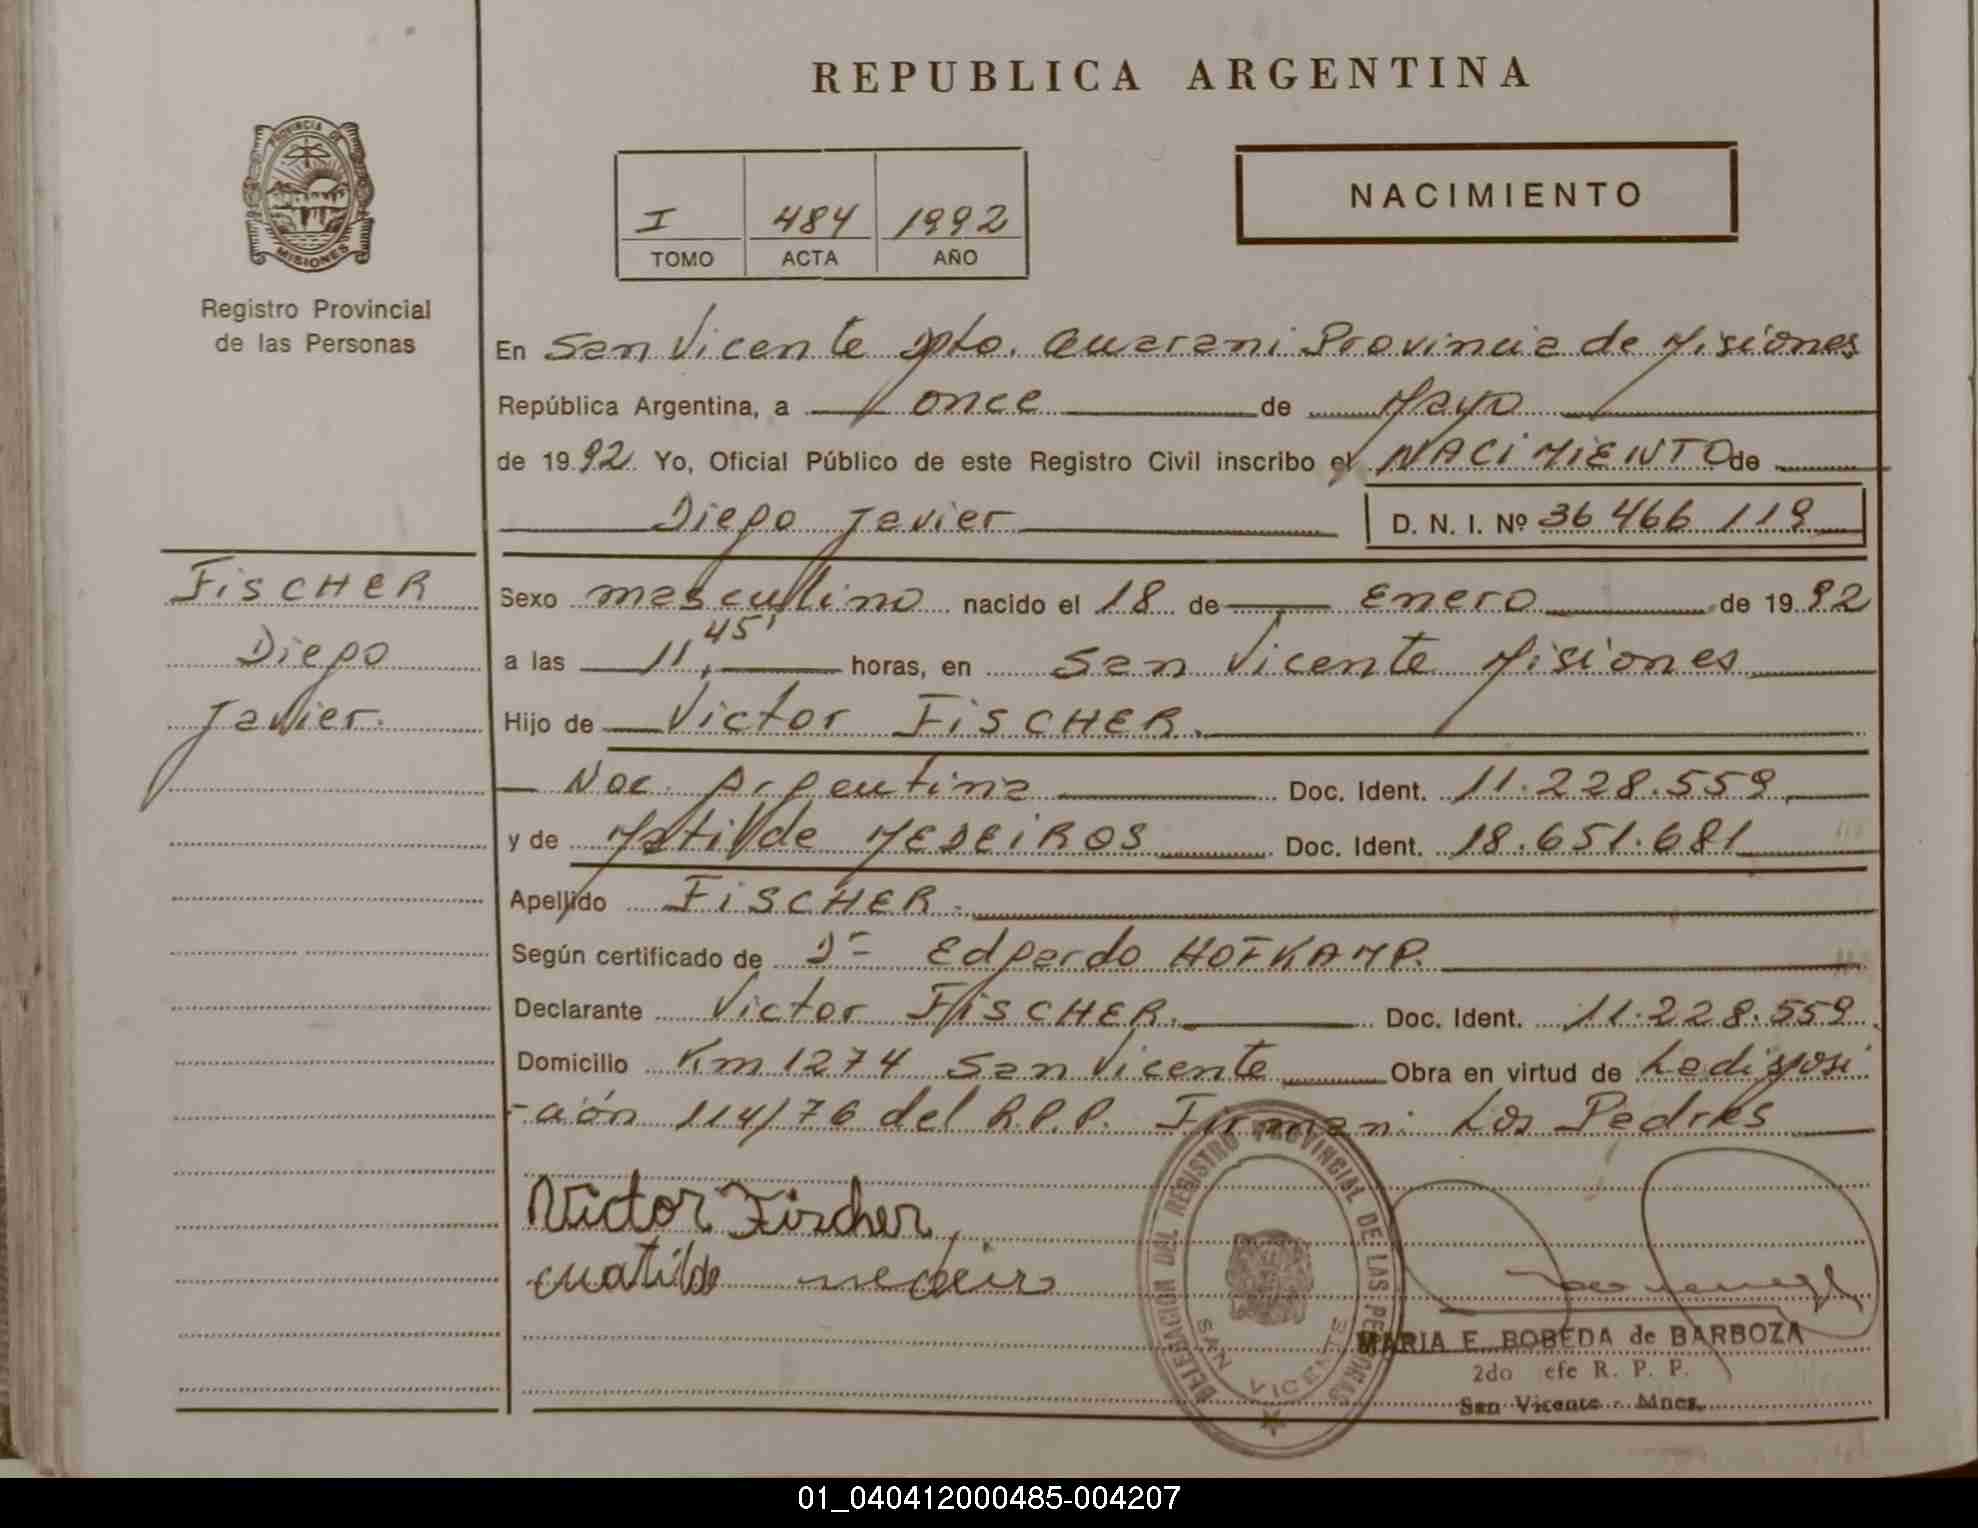 REPUBLICA ARGENTINA
PROVINCIA DE
MISIONES
Registro Provincial
de las Personas
I 484 1992
TOMO ACTA AÑO
NACIMIENTO
En San Vicente Dpto. Guarani Provincia de Misiones
República Argentina, a once de Mayo
de 1992. Yo, Oficial Público de este Registro Civil inscribo el NACIMIENTO de
Diego Javier D. N. I. Nº 36 466 119
FiSCHER
Diego
Javier.
Sexo masculino nacido el 18 de Enero de 1992
a las 11,45' horas, en San Vicente Misiones
Hijo de Victor FiSCHER.
Nac. Argentina Doc. Ident. 11.228.559
y de Matilde MEDEiROS Doc. Ident. 18.651.681
Apellido FiSCHER.
Según certificado de Dr Edgardo HOFKAMP.
Declarante Victor FiSCHER. Doc. Ident. 11.228.559
Domicilio Km 1274 San Vicente Obra en virtud de La disposi
-ción 114/76 del R.P.P. Firman: Los Padres
Victor Fischer
Matilde
DELEGACION DEL REGISTRO PROVINCIAL DE LAS PERSONAS
SAN VICENTE
MARIA E. BOBEDA de BARBOZA
2do efe R. P. P.
San Vicente - Mnes.
01_040412000485-004207